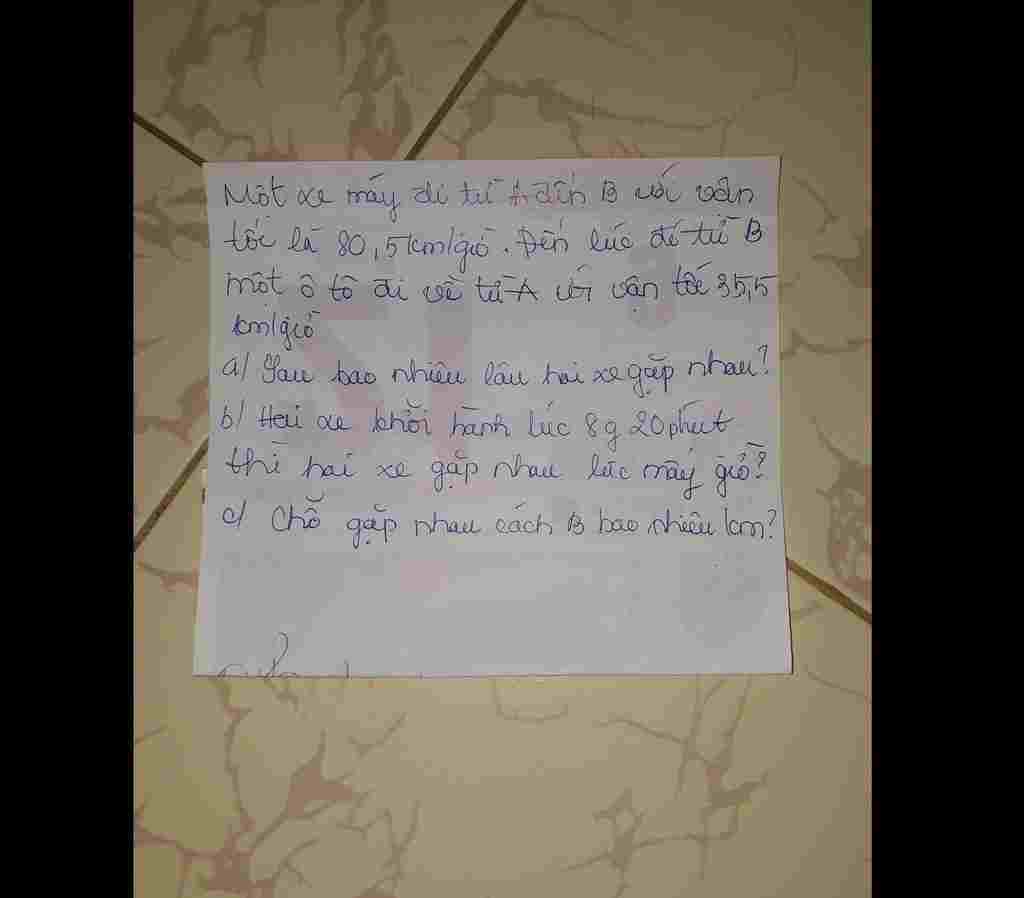 Một xe máy đi từ A đến B với vận
tốc là 80,5km/giờ. Đến lúc đó từ B
một ô tô đi về từ A với vận tốc 35,5
km/giờ
a/ Sau bao nhiêu lâu hai xe gặp nhau?
b/ Hai xe khởi hành lúc 8g 20phút
thì hai xe gặp nhau lúc mấy giờ?
c/ Chỗ gặp nhau cách B bao nhiêu km?